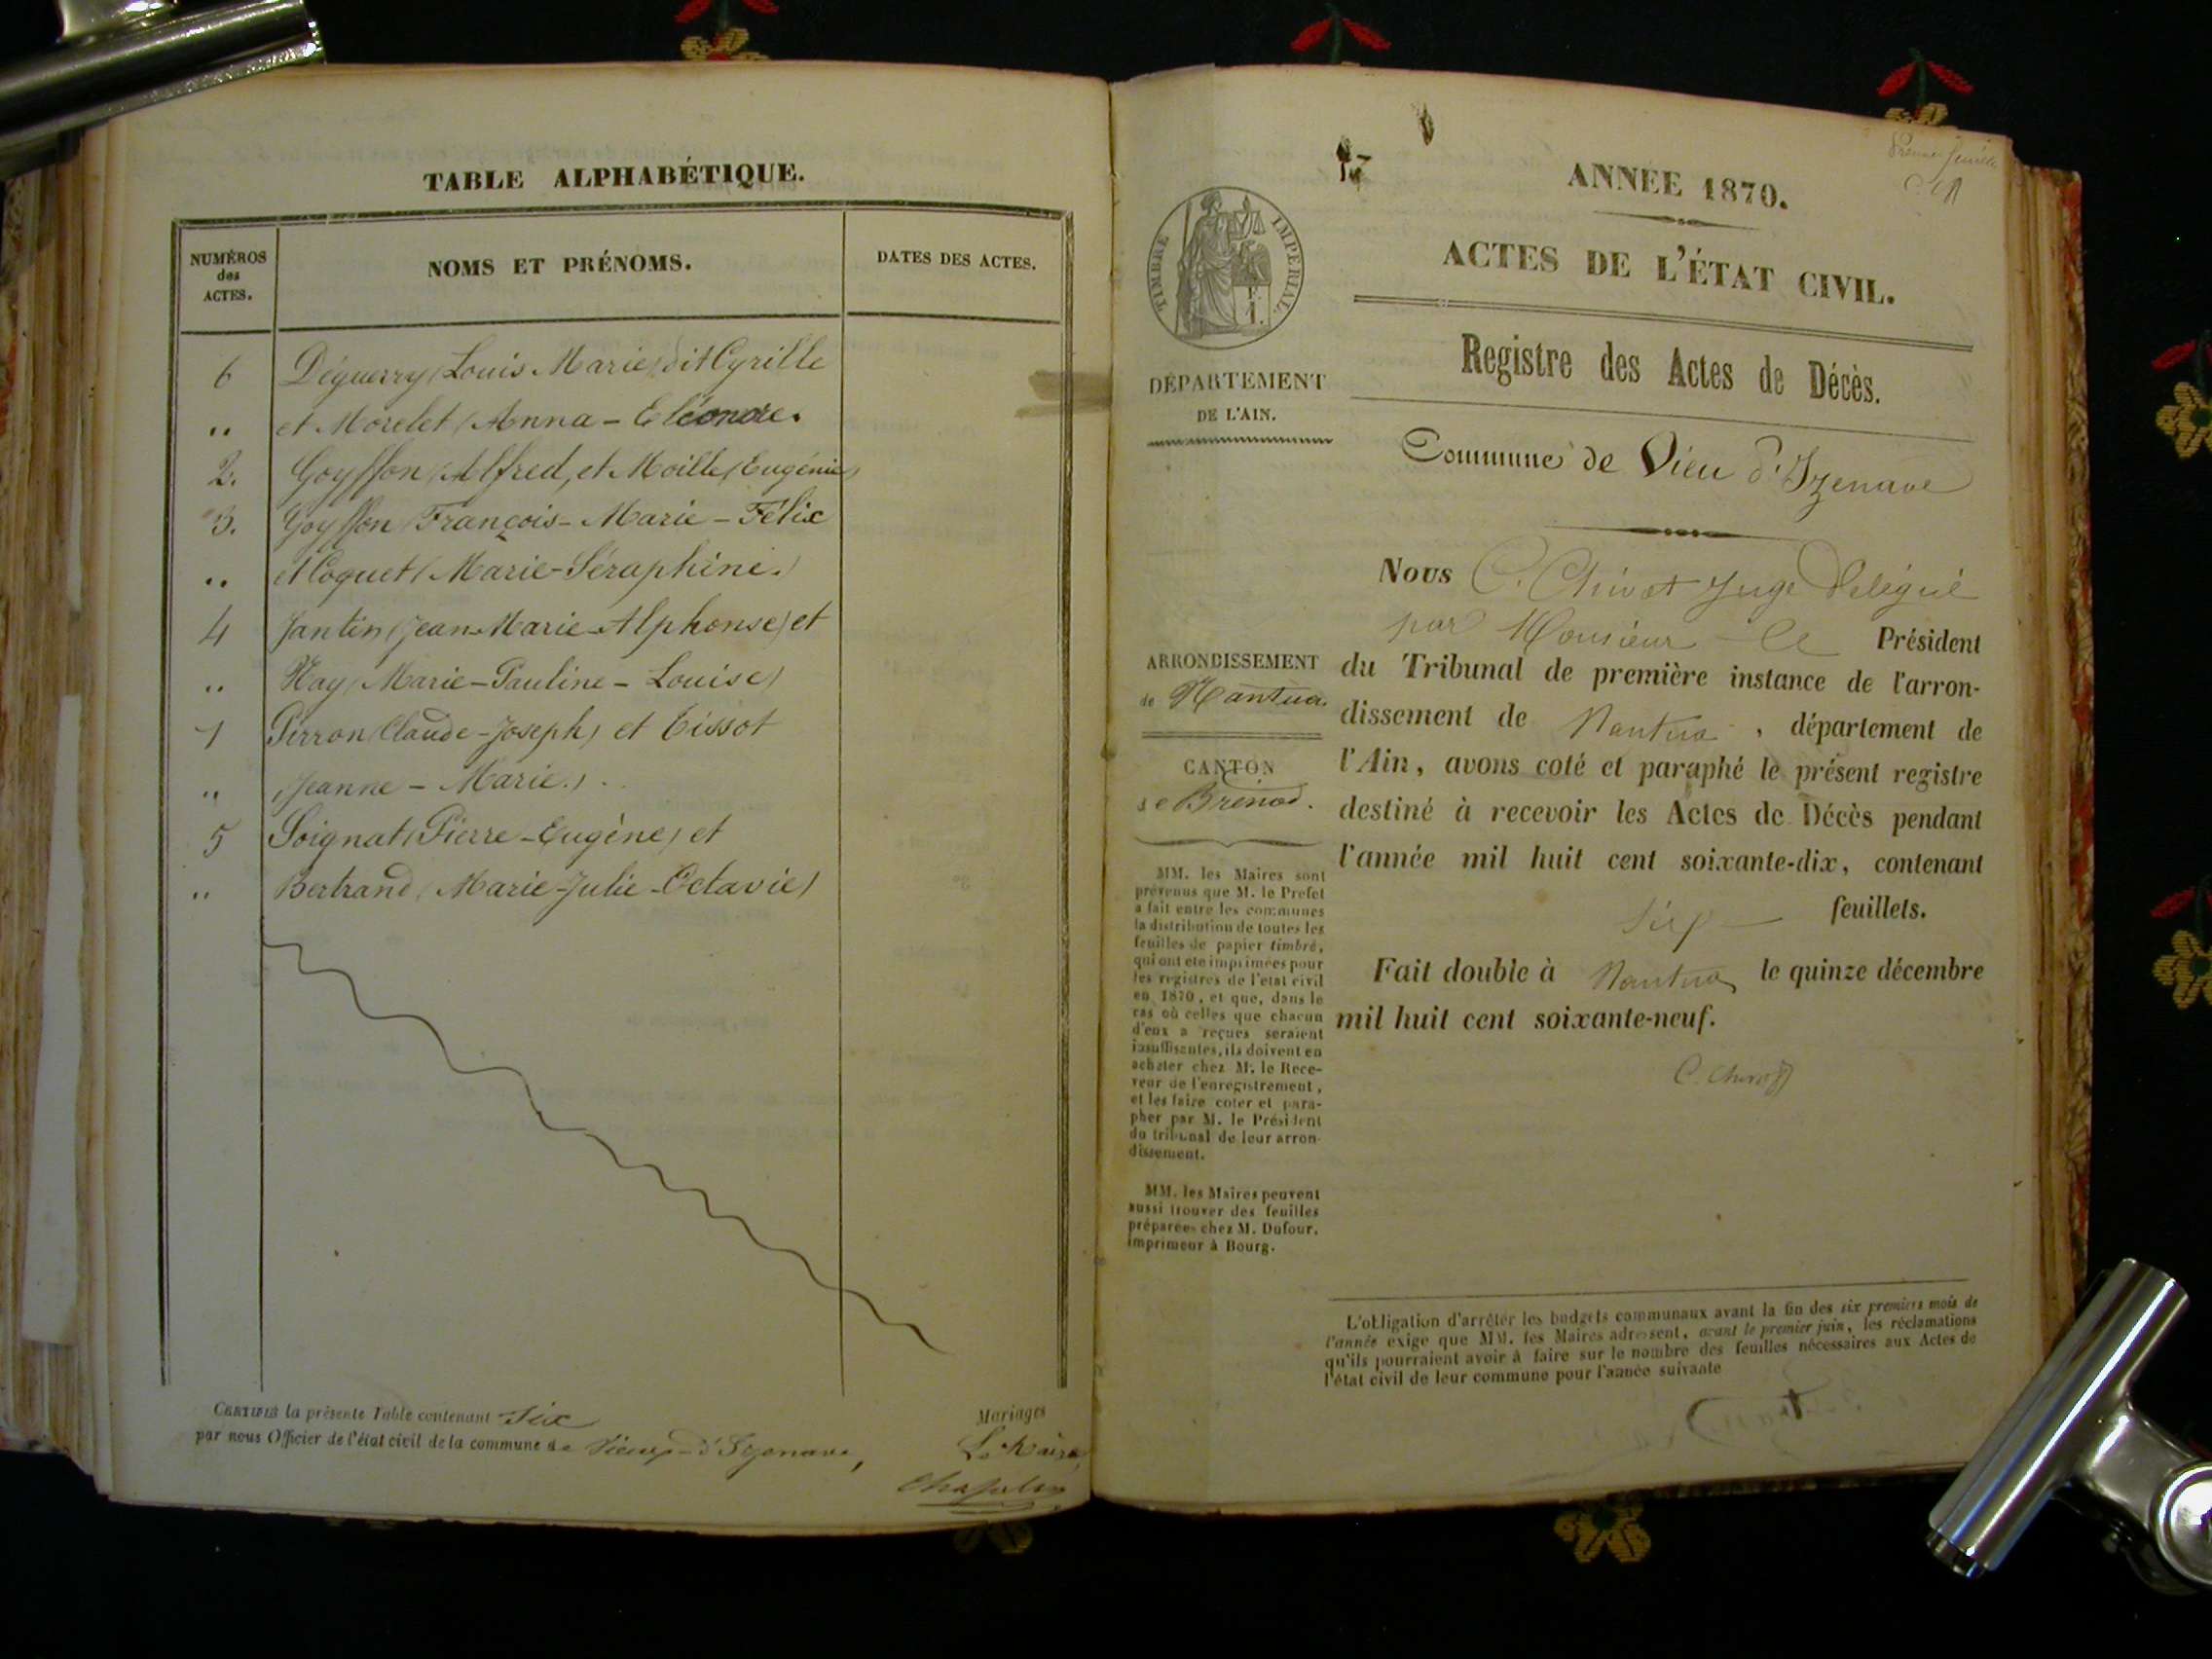 TABLE ALPHABÉTIQUE.
NUMÉROS
des
ACTES.
NOMS ET PRÉNOMS.
DATES DES ACTES.
6 Déguerry (Louis Marie) dit Cyrille
" et Morelet (Anna - Eléonore.
2. Goyffon (Alfred, et Moille (Eugénie)
3. Goyffon (François - Marie - Félix
" et Coquet (Marie-Séraphine.)
4 Jantin (Jean-Marie-Alphonse) et
" Nay (Marie-Pauline - Louise)
1 Pirron (Claude-Joseph) et Tissot
" (Jeanne - Marie.)
5 Soignat (Pierre-Eugène) et
" Bertrand (Marie-Julie-Octavie)
CERTIFIÉ la présente Table contenant Six Mariages
par nous Officier de l'état civil de la commune de Vieux-d'Izenave,
Le Maire,
ANNÉE 1870.
ACTES DE L'ÉTAT CIVIL.
TIMBRE IMPÉRIAL.
Registre des Actes de Décès.
DÉPARTEMENT
DE L'AIN.
Commune de Vieu d'Izenave
Nous C. Chivot Juge Délégué
par Monsieur le Président
du Tribunal de première instance de l'arron-
dissement de Nantua, département de
l'Ain, avons coté et paraphé le présent registre
destiné à recevoir les Actes de Décès pendant
l'année mil huit cent soixante-dix, contenant
feuillets.
Fait double à Nantua le quinze décembre
mil huit cent soixante-neuf.
C. Chivot
ARRONDISSEMENT
de Nantua.
CANTON
de Brénod.
MM. les Maires sont
prévenus que M. le Préfet
a fait entre les communes
la distribution de toutes les
feuilles de papier timbré,
qui ont été imprimées pour
les registres de l'état civil
en 1870, et que, dans le
cas où celles que chacun
d'eux a reçues seraient
insuffisantes, ils doivent en
acheter chez M. le Rece-
veur de l'enregistrement,
et les faire coter et para-
pher par M. le Président
du tribunal de leur arron-
dissement.
MM. les Maires peuvent
aussi trouver des feuilles
préparées chez M. Dufour,
imprimeur à Bourg.
L'obligation d'arrêter les budgets communaux avant la fin des six premiers mois de
l'année exige que MM. les Maires adressent, avant le premier juin, les réclamations
qu'ils pourraient avoir à faire sur le nombre des feuilles nécessaires aux Actes de
l'état civil de leur commune pour l'année suivante